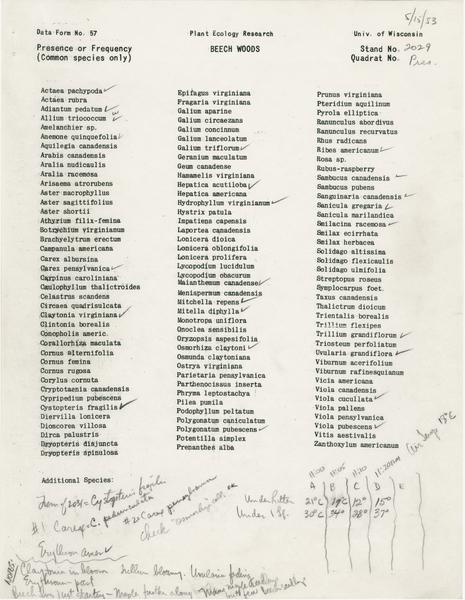 5/15/53
Data Form No. 57 Plant Ecology Research Univ. of Wisconsin
Presence or Frequency BEECH WOODS Stand No. 2029
(Common species only) Quadrat No. Pres.
Actaea pachypoda ✓
Actaea rubra
Adiantum pedatum ✓
Allium tricoccum ✓
Amelanchier sp.
Anemone quinquefolia ✓
Aquilegia canadensis
Arabis canadensis
Aralia nudicaulis
Aralia racemosa
Arisaema atrorubens
Aster macrophyllus
Aster sagittifolius
Aster shortii
Athyrium filix-femina
Botrychium virginianum
Brachyelytrum erectum
Campanula americana
Carex albursina
Carex pensylvanica ✓
Carpinus caroliniana
Caulophyllum thalictroides
Celastrus scandens
Circaea quadrisulcata
Claytonia virginiana ✓
Clintonia borealis
Conopholis americ.
Corallorhiza maculata
Cornus alternifolia
Cornus femina
Cornus rugosa
Corylus cornuta
Cryptotaenia canadensis
Cypripedium pubescens
Cystopteris fragilis ✓
Diervilla lonicera
Dioscorea villosa
Dirca palustris
Dryopteris disjuncta
Dryopteris spinulosa
Epifagus virginiana
Fragaria virginiana
Galium aparine
Galium circaezans
Galium concinnum
Galium lanceolatum
Galium triflorum ✓
Geranium maculatum
Geum canadense
Hamamelis virginiana
Hepatica acutiloba ✓
Hepatica americana
Hydrophyllum virginianum ✓
Hystrix patula
Impatiens capensis
Laportea canadensis
Lonicera dioica
Lonicera oblongifolia
Lonicera prolifera
Lycopodium lucidulum
Lycopodium obscurum
Maianthemum canadense ✓
Menispermum canadensis
Mitchella repens ✓
Mitella diphylla ✓
Monotropa uniflora
Onoclea sensibilis
Oryzopsis aspesifolia
Osmorhiza claytoni ✓
Osmunda claytoniana
Ostrya virginiana
Parietaria pensylvanica
Parthenocissus inserta
Phryma leptostachya
Pilea pumila
Podophyllum peltatum
Polygonatum caniculatum
Polygonatum pubescens ✓
Potentilla simplex
Prenanthes alba
Prunus virginiana
Pteridium aquilinum
Pyrola elliptica
Ranunculus abordivus
Ranunculus recurvatus
Rhus radicans
Ribes americanum ✓
Rosa sp.
Rubus-raspberry
Sambucus canadensis ✓
Sambucus pubens
Sanguinaria canadensis ✓
Sanicula gregaria ✓
Sanicula marilandica
Smilacina racemosa ✓
Smilax ecirrhata
Smilax herbacea
Solidago altissima
Solidago flexicaulis
Solidago ulmifolia
Streptopus roseus
Symplocarpus foet.
Taxus canadensis
Thalictrum dioicum
Trientalis borealis
Trillium flexipes
Trillium grandiflorum ✓
Triosteum perfoliatum
Uvularia grandiflora ✓
Viburnum acerifolium
Viburnum rafinesquianum
Vicia americana
Viola canadensis
Viola cucullata ✓
Viola pallens
Viola pensylvanica
Viola pubescens ✓
Vitis aestivalis
Zanthoxylum americanum
Additional Species:
11:00 11:05 11:20
A B C D E
Under litter 21°C 19°C 12° 15°
Under 1 Sq. 30°C 34° 28° 37°
# 1 Carex = C.
# 2 Carex pensylvanica
check
Notes:
Claytonia in bloom Trillium blooming. Uvularia fading
Erythronium - past
Beech leaves just starting - Maple further along -